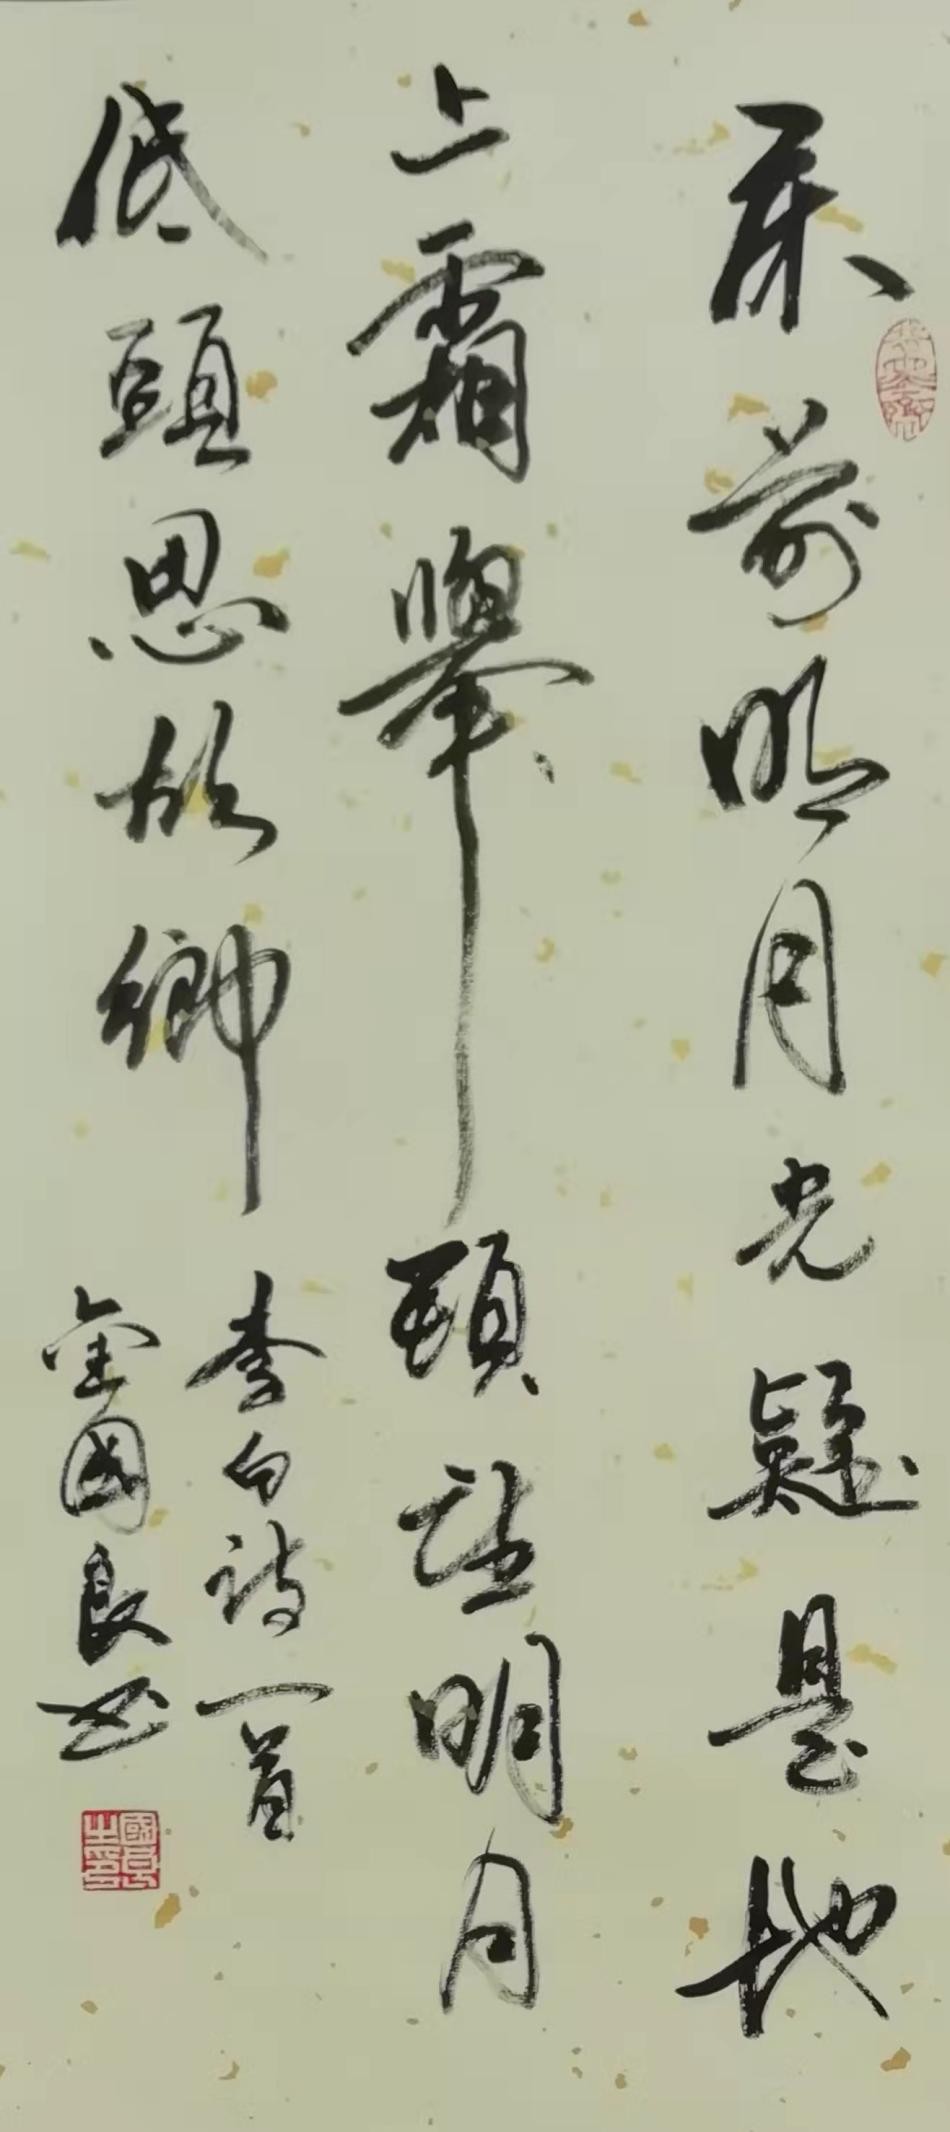 床前明月光疑是地
上霜舉頭望明月
低頭思故鄉
李白詩一首
金國良书
國良之印